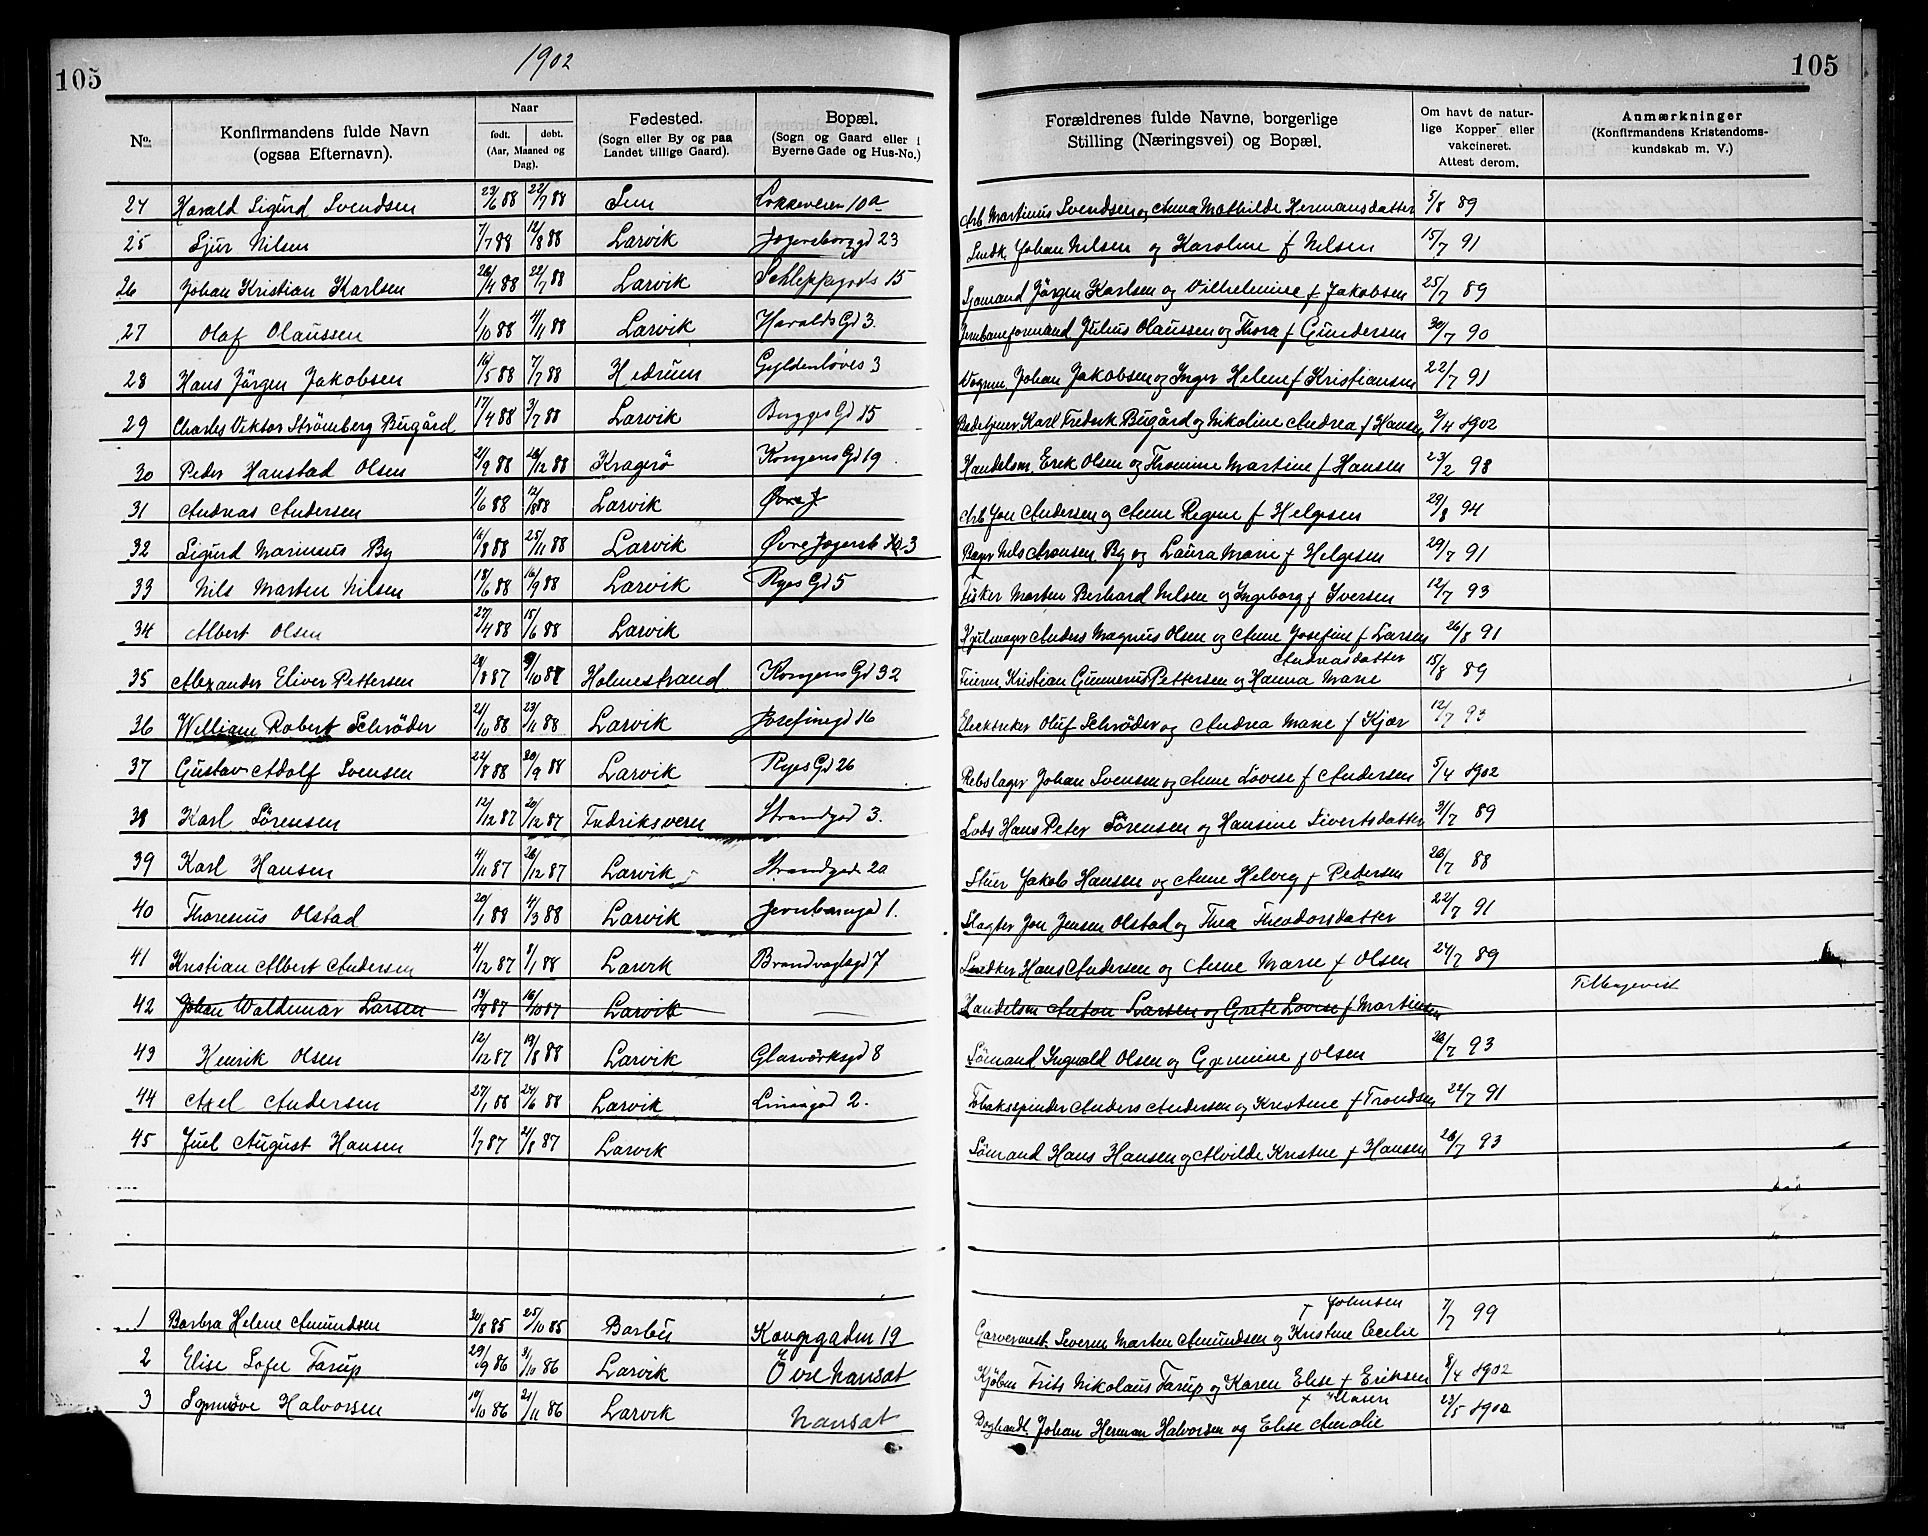 105
1902
105
No. Konfirmandens fulde Navn (ogsaa Efternavn). Naar født. døbt. (Aar, Maaned og Dag). Fødested. (Sogn eller By og paa Landet tillige Gaard). Bopæl. (Sogn og Gaard eller i Byerne Gade og Hus-No.) Forældrenes fulde Navne, borgerlige Stilling (Næringsvei) og Bopæl. Om havt de naturlige Kopper eller vakcineret. Attest derom. Anmærkninger (Konfirmandens Kristendomskundskab m. V.)
24 Harald Sigurd Svendsen 23/6 88 22/7 88 Sem 10a Arb Martinus Svendsen og Anna Mathilde Hermansdatter 5/8 89
25 Sjur Nilsen 7/7 88 12/8 88 Larvik Jegersborggd 23 Snedk. Johan Nilsen og Karoline f Nilsen 15/7 91
26 Johan Kristian Karlsen 26/4 88 22/7 88 Larvik Schleppegrds 15 Sjømand Jörgen Karlsen og Vilhelmine f Jakobsen 25/7 89
27 Olaf Olaussen 1/10 88 4/11 88 Larvik Haralds Gd 3. Jernbaneformand Julius Olaussen og Thora f Gundersen 30/7 90
28 Hans Jörgen Jakobsen 16/5 88 7/7 88 Hedrum Gyldenløves 3 Vognm. Johan Jakobsen og Inger Helene f Kristiansen 22/7 91
29 Charles Viktor Strömberg Bugård 17/4 88 3/7 88 Larvik Brygges Gd 15 Karl Fredrik Bugård og Nikoline Andrea f Hansen 2/4 1902
30 Peder Hanstad Olsen 21/9 88 26/12 88 Kragerö Kongens Gd 19 Handelsm. Erik Olsen og Thomine Martine f Hansen 23/2 98
31 Andreas Andersen 1/6 88 12/8 88 Larvik Øvre J Arb Jon Andersen og Anne Regine f Helgesen 29/8 94
32 Sigurd Marinius By 16/8 88 25/11 88 Larvik Øvre Jegersb 3 Bager Nils Aronsen By og Laura Marie f Helgesen 29/7 91
33 Nils Marten Nilsen 18/6 88 16/9 88 Larvik Ryes Gd 5 Fisker Morten Berhard Nilsen og Ingeborg f Iversen 12/7 93
34 Albert Olsen 27/4 88 15/6 88 Larvik Hjulmager Anders Magnus Olsen og Anne Josefine f Larsen 26/8 91
35 Alexander Eliver Pettersen 29/8 87 9/10 87 Holmestrand Kongens Gd 32 Feierm. Kristian Gunnerus Pettersen og Hanna Marie Andreasdatter 15/8 89
36 William Robert Schröder 21/10 88 23/11 88 Larvik Josefinegd 16 Elecktriker Oluf Schröder og Andrea Marie f Kjær 12/7 93
37 Gustav Adolf Svensen 22/8 88 30/9 88 Larvik Ryes Gd 26 Rebslager Johan Svensen og Anne Lovise f Andersen 5/4 1902
38 Karl Sörensen 12/12 87 20/12 87 Fredriksvern Strandgad 3. Lods Hans Peter Sörensen og Hansine Sivertsdatter 31/7 89
39 Karl Hansen 4/11 87 26/12 87 Larvik Strandgade 20 Stuer Jakob Hansen og Anne Helvig f Pedersen 20/7 88
40 Thoresius Olstad 20/1 88 4/3 88 Larvik Jernbanegd 1. Slagter Jon Jensen Olstad og Thea Theodorsdatter 22/7 91
41 Kristian Albert Andersen 4/12 87 8/1 88 Larvik Brandvagtsgd 7 Snedker Hans Andersen og Anne Marie f Olsen 24/7 89
42 Johan Waldemar Larsen 13/9 87 16/10 87 Larvik Handelsm Anton Larsen og Grete Lovise f Martinsen Tilbagevist
43 Henrik Olsen 12/12 87 19/8 88 Larvik Glasværksgd 8 Sömand Ingvald Olsen og Germine f Olsen 20/7 93
44 Axel Andersen 27/1 88 24/6 88 Larvik Linaagad 2. Tobakspinder Anders Andersen og Kristine f Trondsen 22/7 91
45 Juel August Hansen 1/7 87 21/8 87 Larvik Sömand Hans Hansen og Alvilde Kristine f Hansen 26/7 93
1 Barbra Helene Amundsen 30/8 85 25/10 85 Barbu Kongegaden 19 Garvermest. Severin Marten Amundsen og Kristine Cecilie f Johnsen 7/7 99
2 Elise Sofie Farup 29/9 86 31/10 86 Larvik Övre Nansat Kjöbm Frits Nikolaus Farup og Karen Elise f Eriksen 8/4 1902
3 Synnöve Halvorsen 19/10 86 21/11 86 Larvik Nansat Boghandl. Johan Herman Halvorsen og Elise Amalie f 23/5 1902